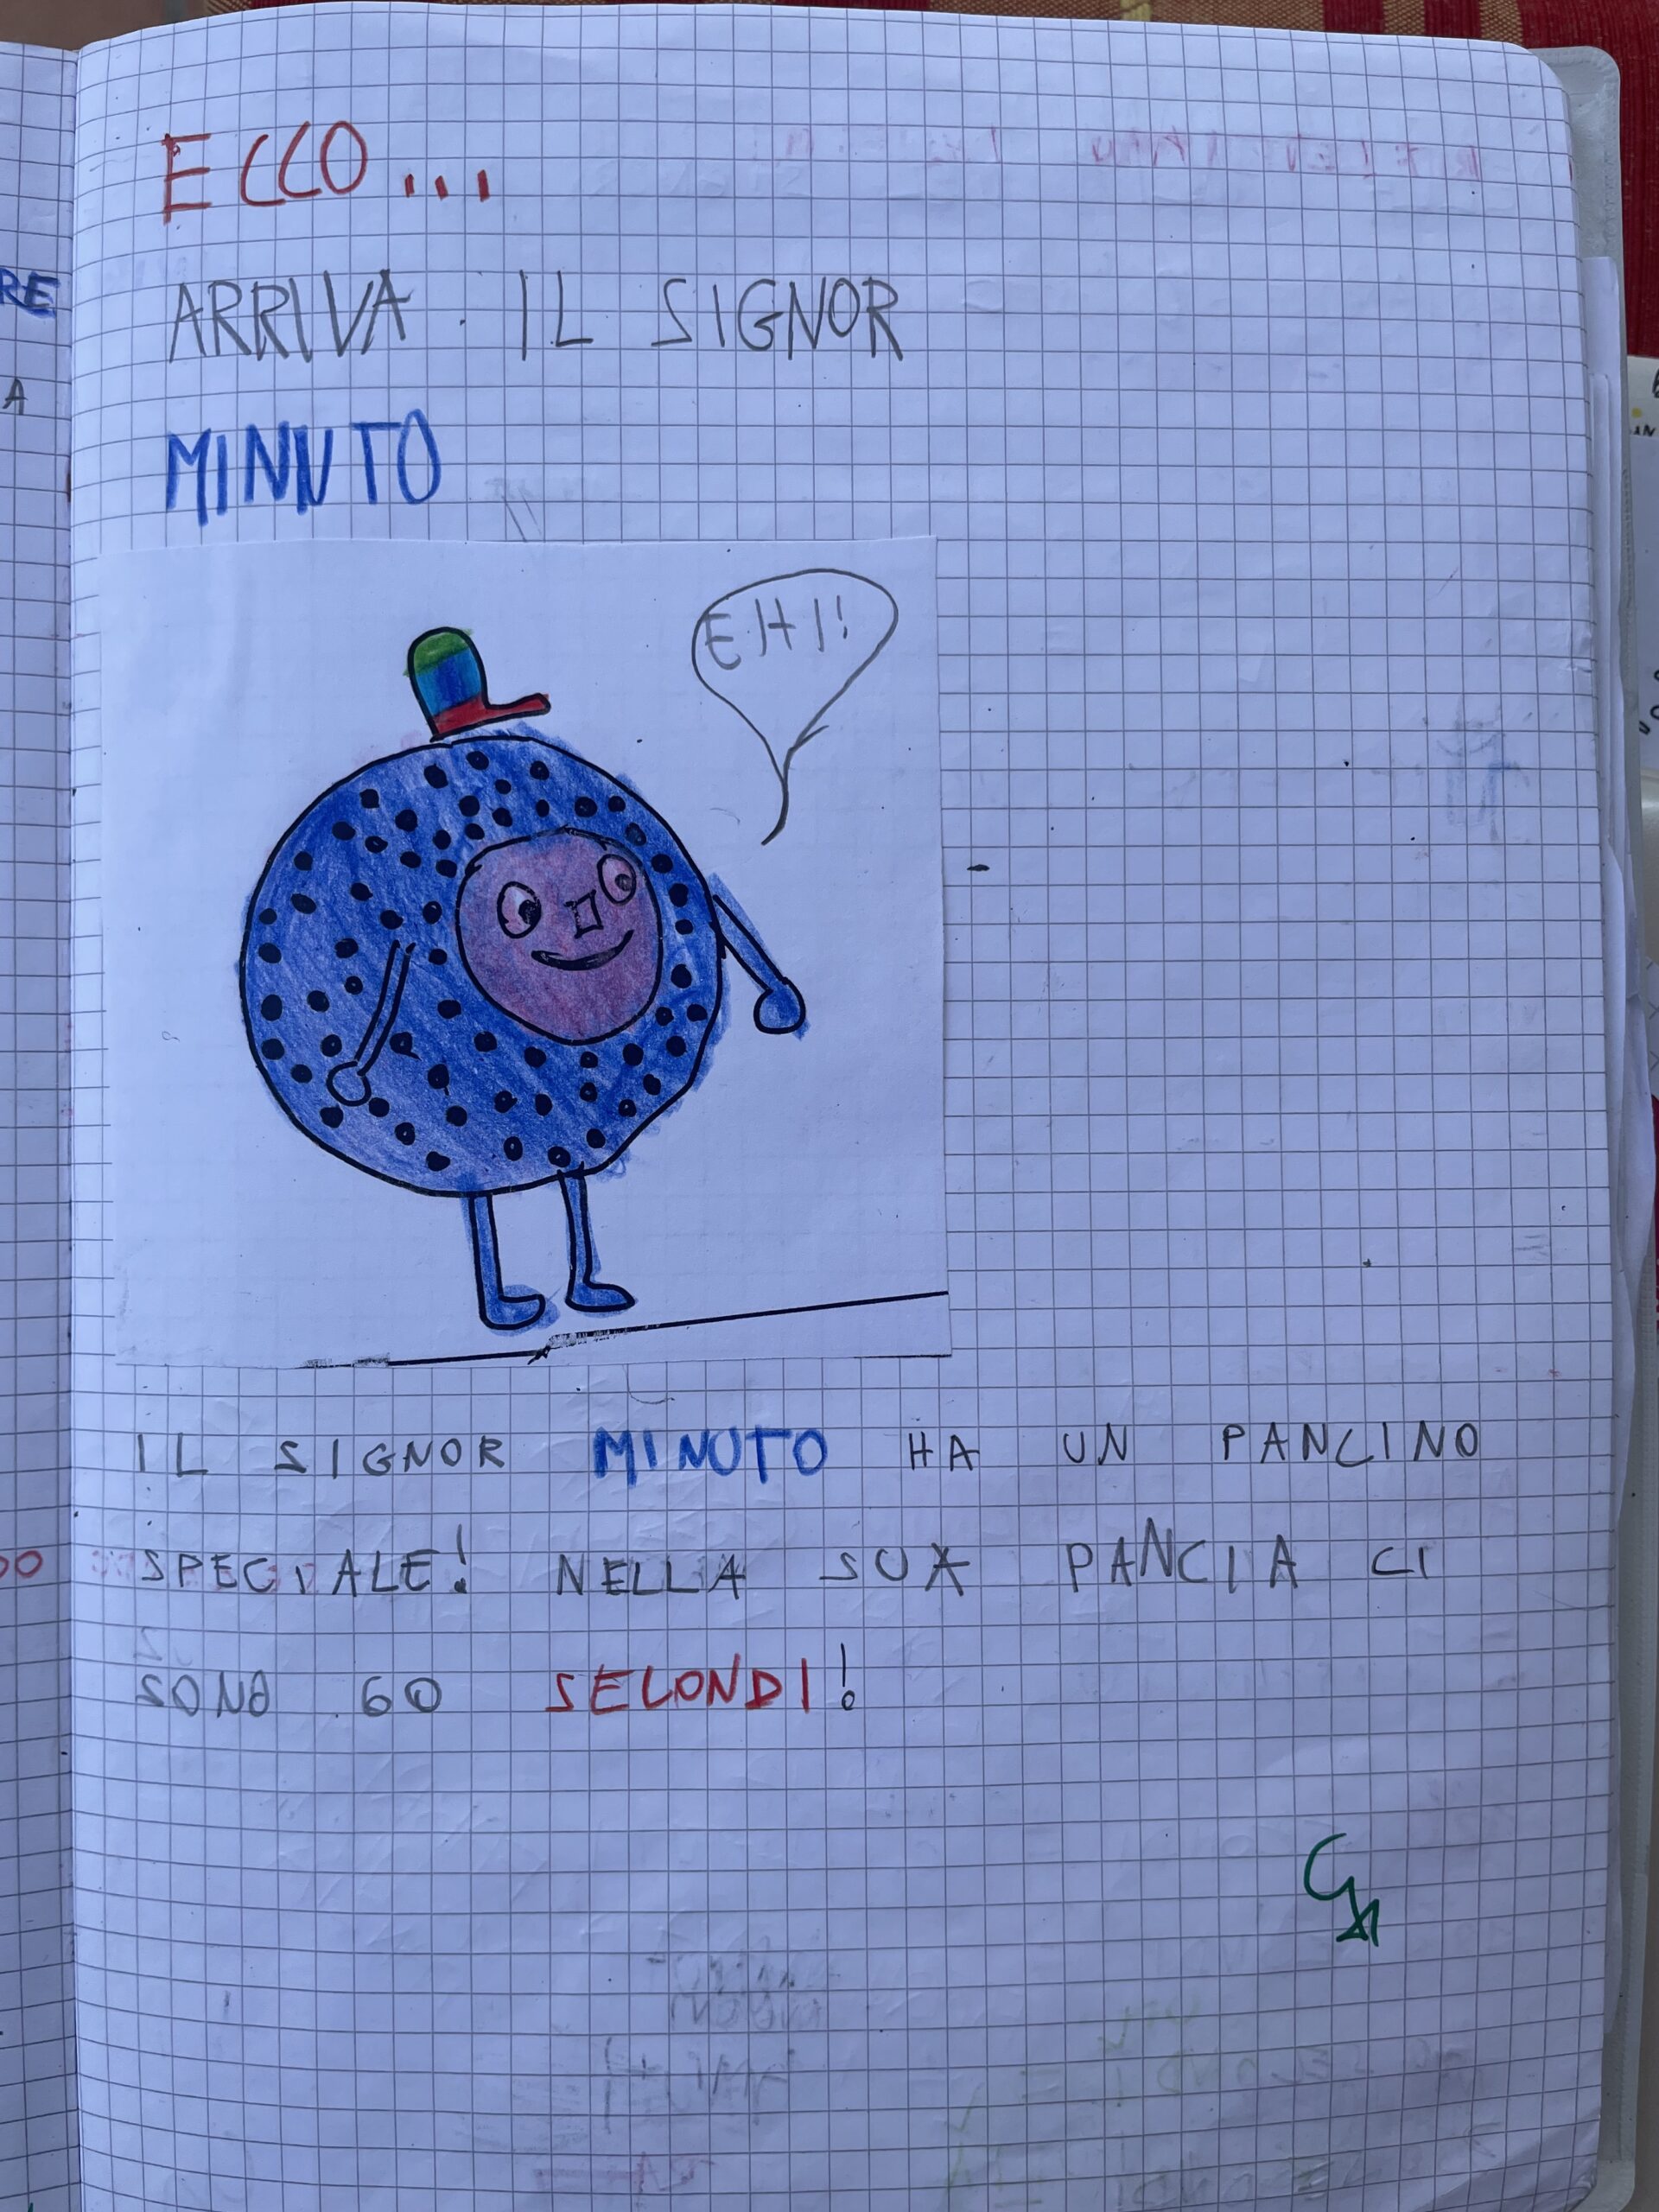 ECCO...
ARRIVA IL SIGNOR
MINUTO
EHI!
IL SIGNOR MINUTO HA UN PANCINO
SPECIALE! NELLA SUA PANCIA CI
SONO 60 SECONDI!
RE
A
DO